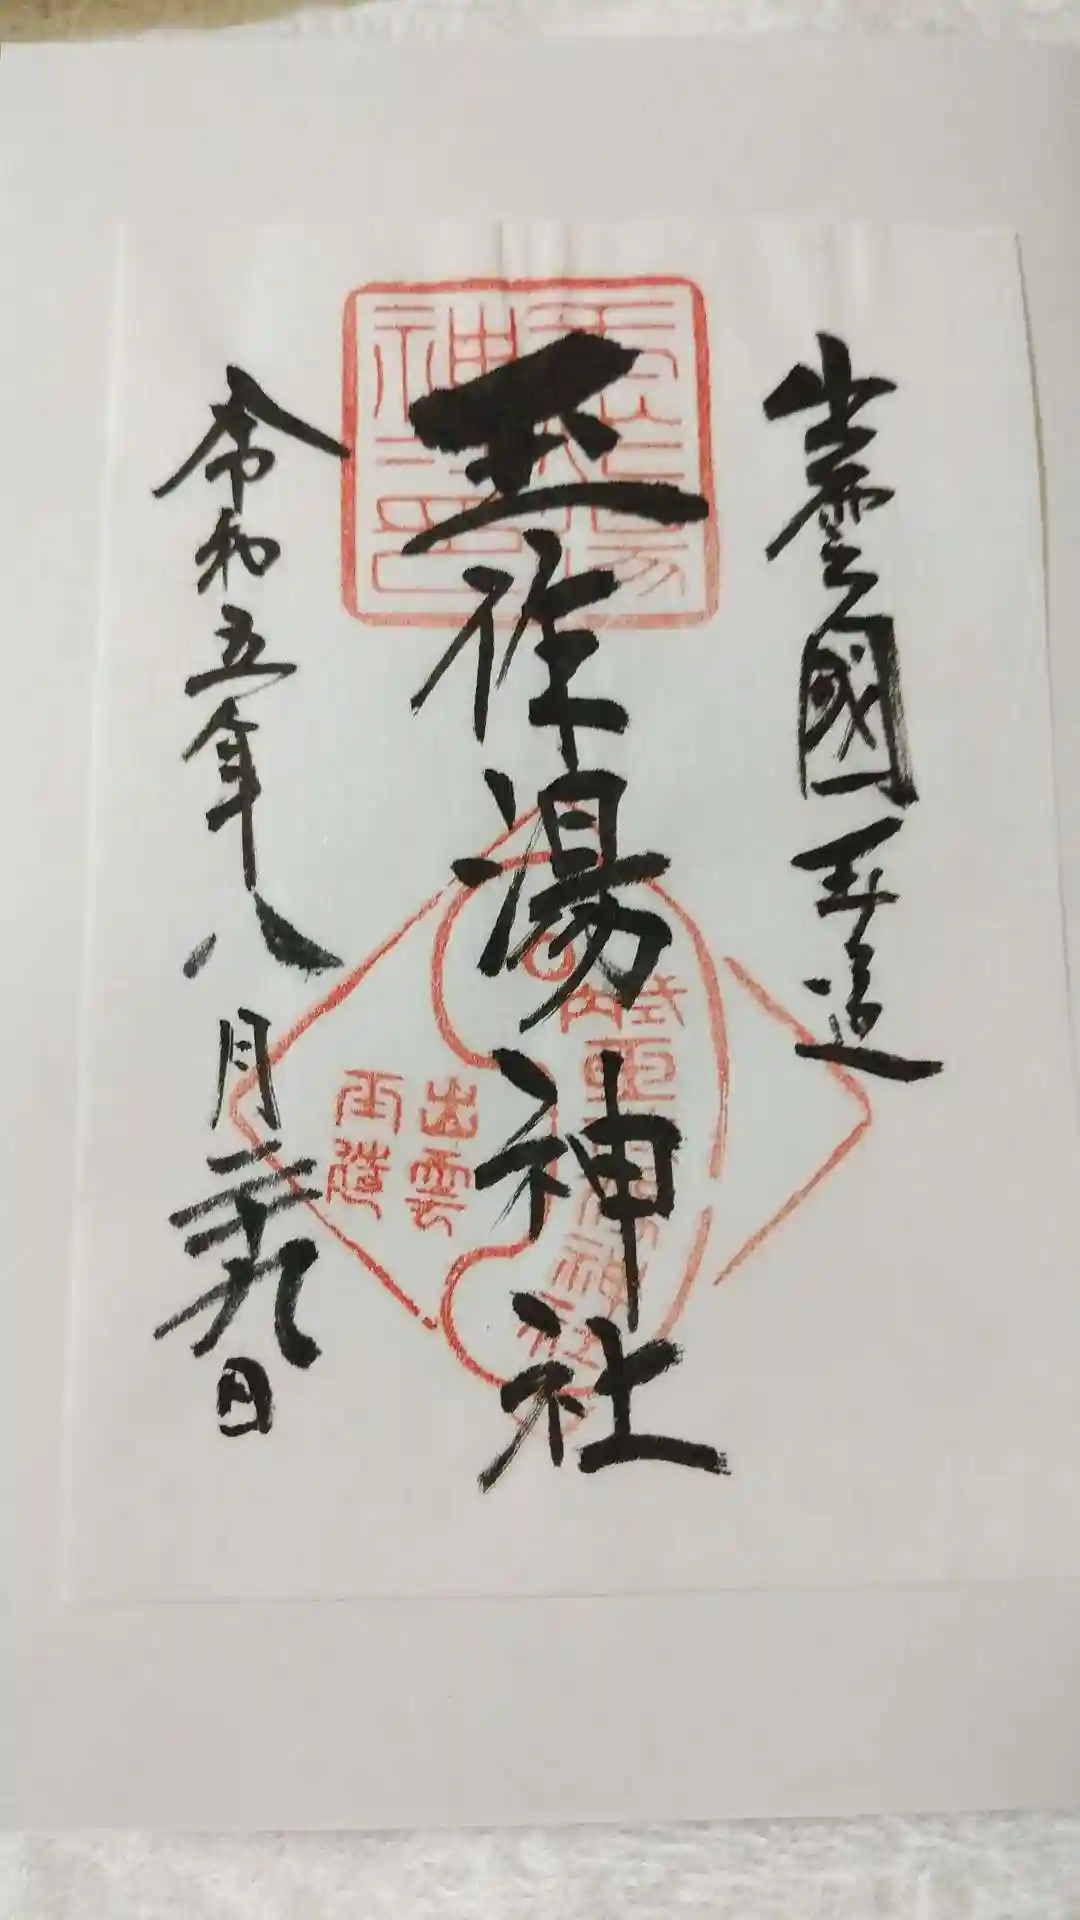 出雲國玉造
玉作湯神社
令和五年八月二十九日
式内玉作湯神社
出雲
玉造